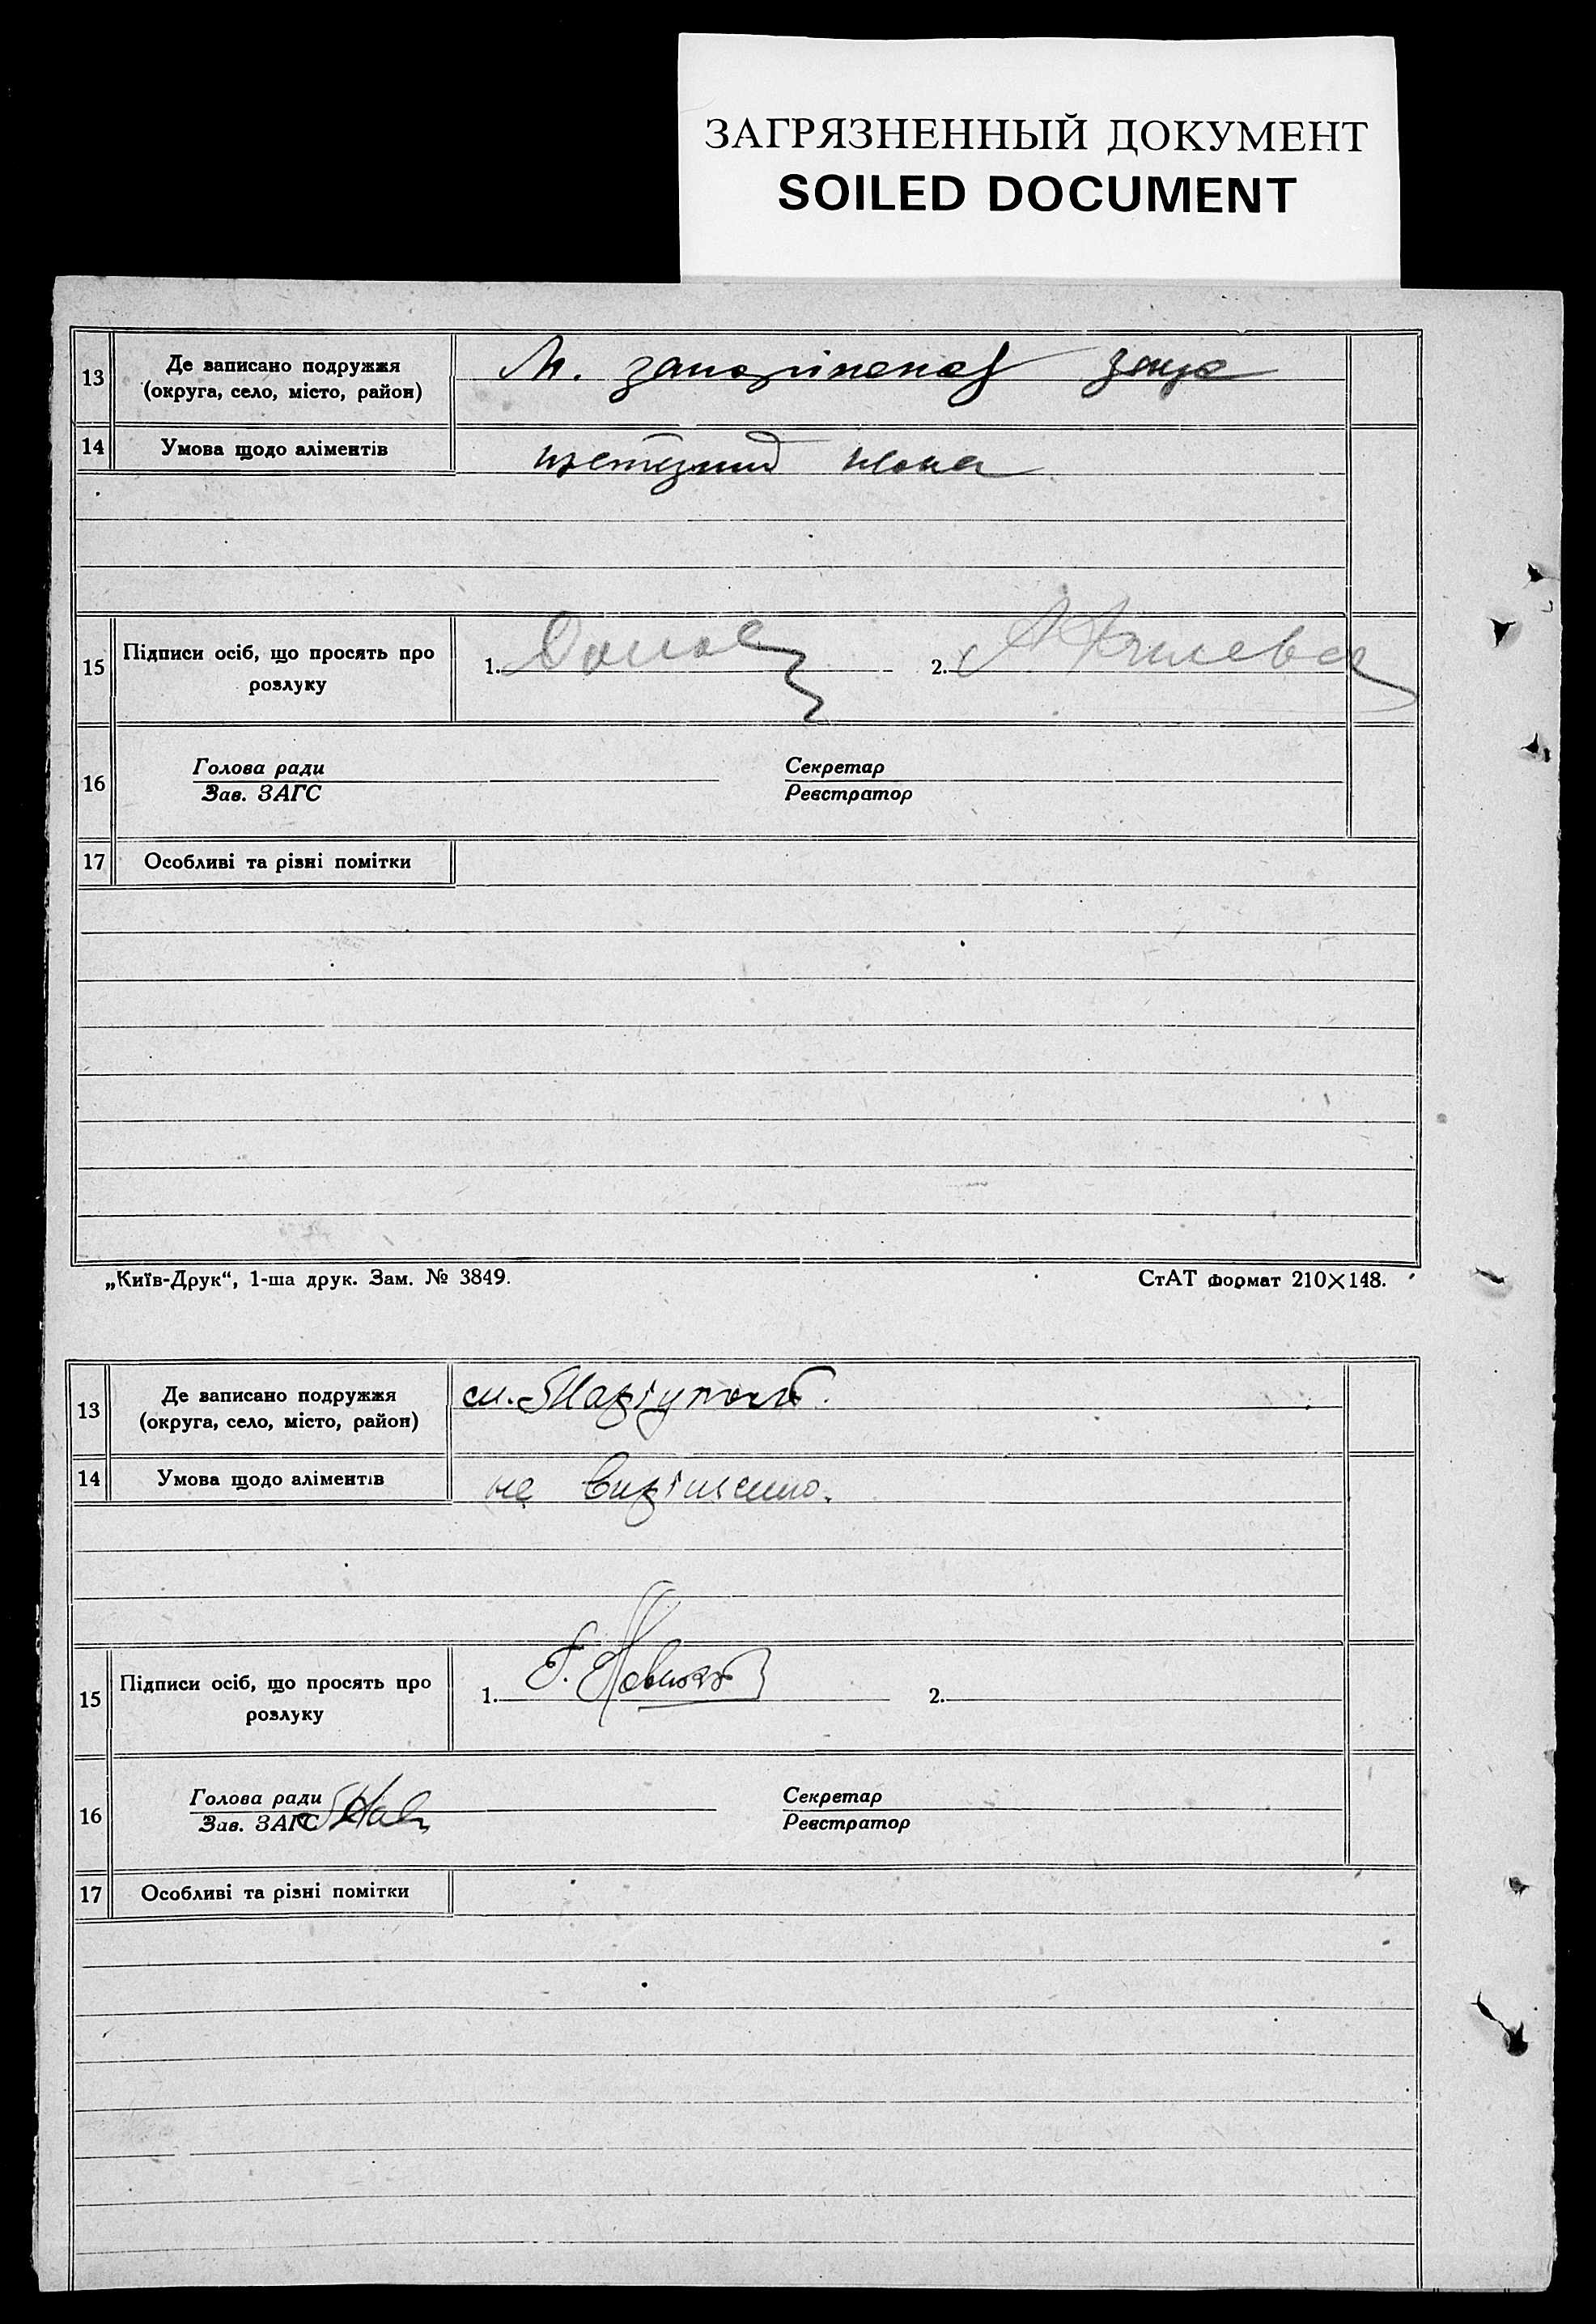 ЗАГРЯЗНЕННЫЙ ДОКУМЕНТ
SOILED DOCUMENT
13 Де записано подружжя
(округа, село, місто, район) М.
14 Умова щодо аліментів
15 Підписи осіб, що просять про
розлуку 1. 2.
16 Голова ради Секретар
Зав. ЗАГС Реєстратор
17 Особливі та різні помітки
„Київ-Друк“, 1-ша друк. Зам. № 3849. СтАТ формат 210×148.
13 Де записано подружжя
(округа, село, місто, район) м. Маріуполь.
14 Умова щодо аліментів не вирішено.
15 Підписи осіб, що просять про
розлуку 1. 2.
16 Голова ради Секретар
Зав. ЗАГС Реєстратор
17 Особливі та різні помітки